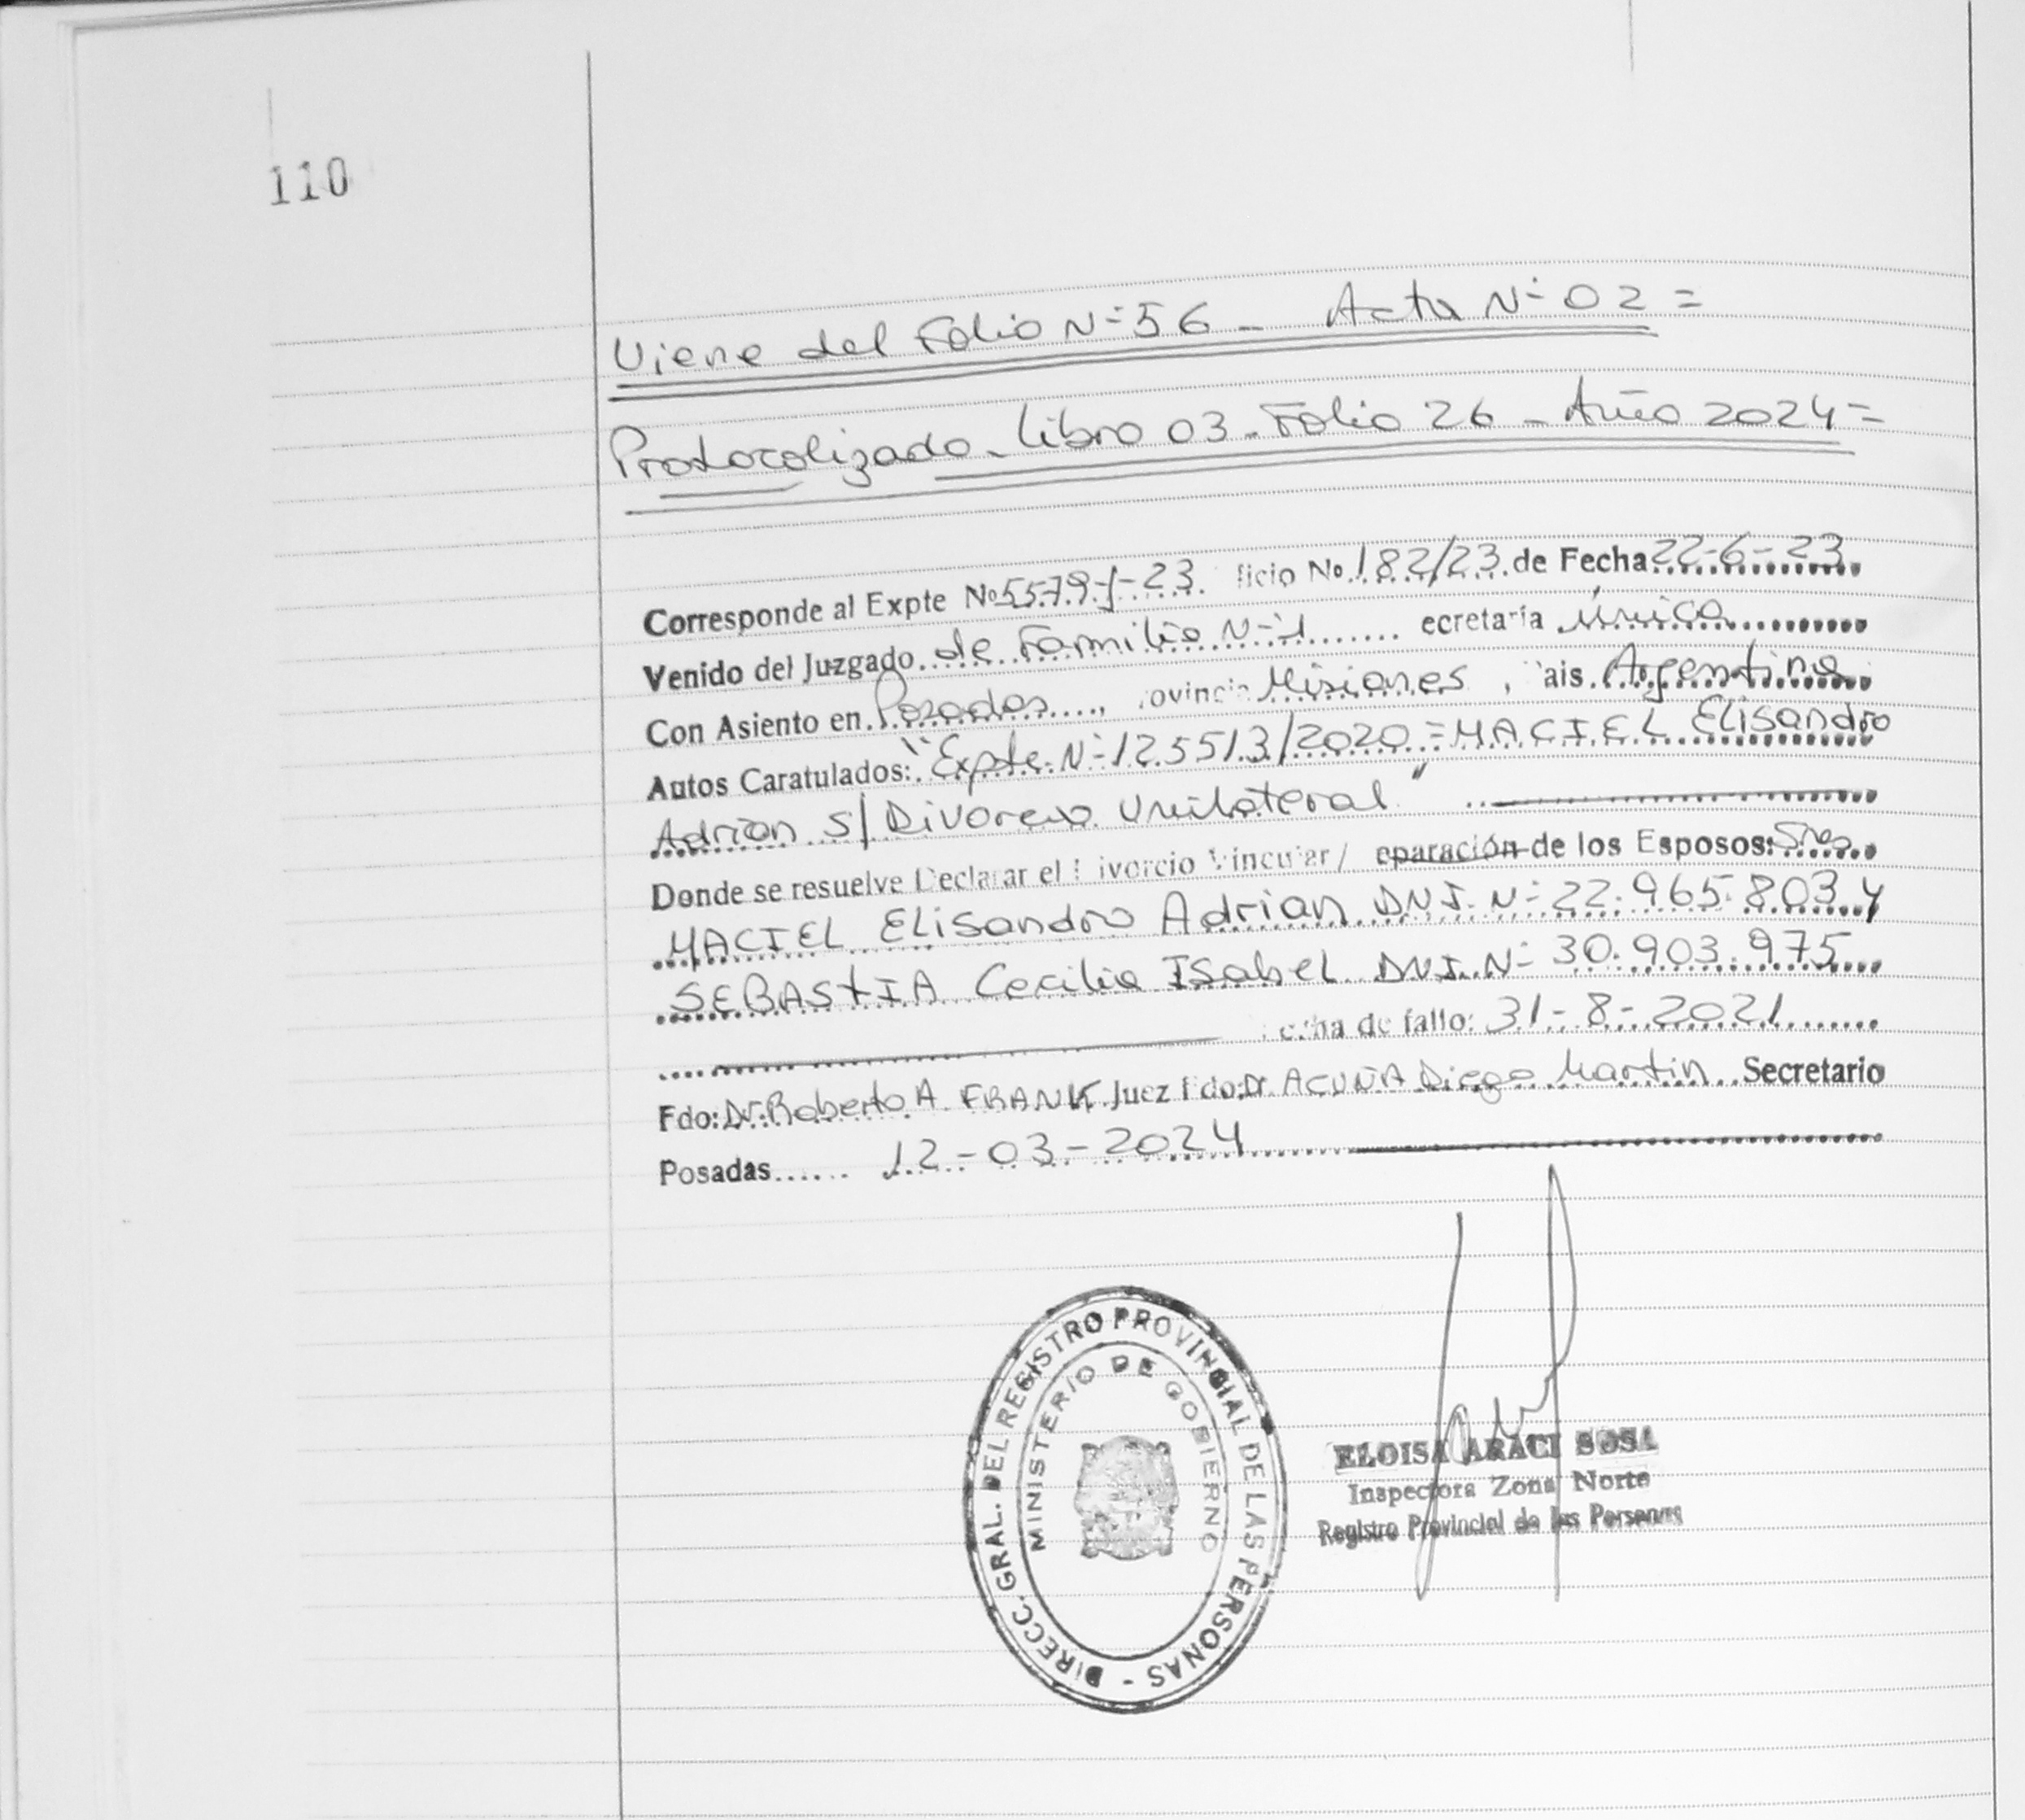 110
Viene del Folio Nº 56 - Acta Nº 02 =
Protocolizado - Libro 03 - Folio 26 - Año 2024 =
Corresponde al Expte Nº 5579-J-23 ficio No. 182/23 de Fecha 22-6-23.
Venido del Juzgado de Familia Nº 1 ecretaría Única
Con Asiento en Posadas, rovincia Misiones, Pais Argentina
Autos Caratulados: "Expte. Nº 125513/2020 = MACIEL Elisandro
Adrian s/ Divorcio Unilateral"
Donde se resuelve Declarar el Divorcio Vincular / eparación de los Esposos: Sres
MACIEL Elisandro Adrian DNI. Nº 22.965.803 y
SEBASTIA Cecilia Isabel DNI. Nº 30.903.975
echa de fallo: 31-8-2021
Fdo: Dr. Roberto A. FRANK Juez Fdo: Dr. ACUÑA Diego Martin Secretario
Posadas 12-03-2024
DIRECC. GRAL. DEL REGISTRO PROVINCIAL DE LAS PERSONAS -
MINISTERIO DE GOBIERNO
ELOISA ARACI SOSA
Inspectora Zona Norte
Registro Provincial de las Personas